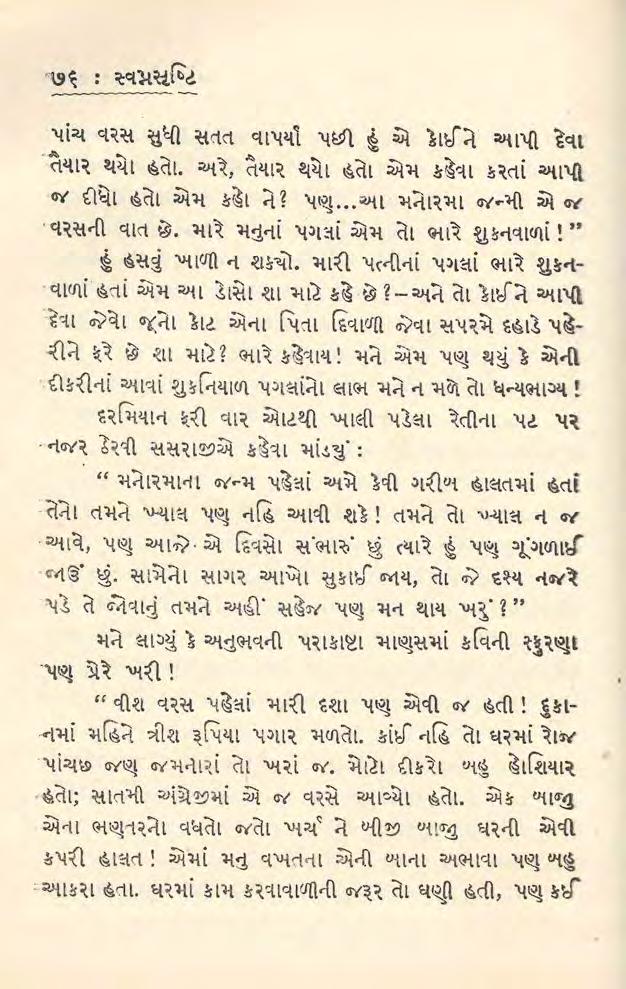 ૭૬ : સ્વપ્નસૃષ્ટિ
પાંચ વરસ સુધી સતત વાપર્યા પછી હું એ કોઈને આપી દેવા
તૈયાર થયો હતો. અરે, તૈયાર થયો હતો એમ કહેવા કરતાં આપી
જ દીધો હતો એમ કહો ને? પણ...આ મનોરમા જન્મી એ જ
વરસની વાત છે. મારે મનુનાં પગલાં એમ તો ભારે શુકનવાળાં!”
હું હસવું ખાળી ન શક્યો. મારી પત્નીનાં પગલાં ભારે શુકન-
વાળાં હતાં એમ આ ડોસો શા માટે કહે છે?–અને તો કોઈને આપી
દેવા જેવો જૂનો કોટ એના પિતા દિવાળી જેવા સપરમે દહાડે પહે-
રીને ફરે છે શા માટે? ભારે કહેવાય! મને એમ પણ થયું કે એની
દીકરીનાં આવાં શુકનિયાળ પગલાંનો લાભ મને ન મળે તો ધન્યભાગ્ય!
દરમિયાન ફરી વાર ઓટથી ખાલી પડેલા રેતીના પટ પર
નજર ઠેરવી સસરાજીએ કહેવા માંડ્યું:
“ મનોરમાના જન્મ પહેલાં અમે કેવી ગરીબ હાલતમાં હતાં
તેનો તમને ખ્યાલ પણ નહિ આવી શકે! તમને તો ખ્યાલ ન જ
આવે, પણ આજે એ દિવસો સંભારું છું ત્યારે હું પણ ગૂંગળાઈ
જાઉં છું. સામેનો સાગર આખો સુકાઈ જાય, તો જે દશ્ય નજરે
પડે તે જોવાનું તમને અહીં સહેજ પણ મન થાય ખરું?”
મને લાગ્યું કે અનુભવની પરાકાષ્ટા માણસમાં કવિની સ્ફુરણા
પણ પ્રેરે ખરી!
“ વીશ વરસ પહેલાં મારી દશા પણ એવી જ હતી! દુકા-
નમાં મહિને ત્રીશ રૂપિયા પગાર મળતો. કાંઈ નહિ તો ઘરમાં રોજ
પાંચછ જણ જમનારાં તો ખરાં જ. મોટો દીકરો બહુ હોશિયાર
હતો; સાતમી અંગ્રેજીમાં એ જ વરસે આવ્યો હતો. એક બાજુ
એના ભણતરનો વધતો જતો ખર્ચ ને બીજી બાજુ ઘરની એવી
કપરી હાલત! એમાં મનુ વખતના એની બાના અભાવા પણ બહુ
આકરા હતા. ઘરમાં કામ કરવાવાળીની જરૂર તો ઘણી હતી, પણ કઈ